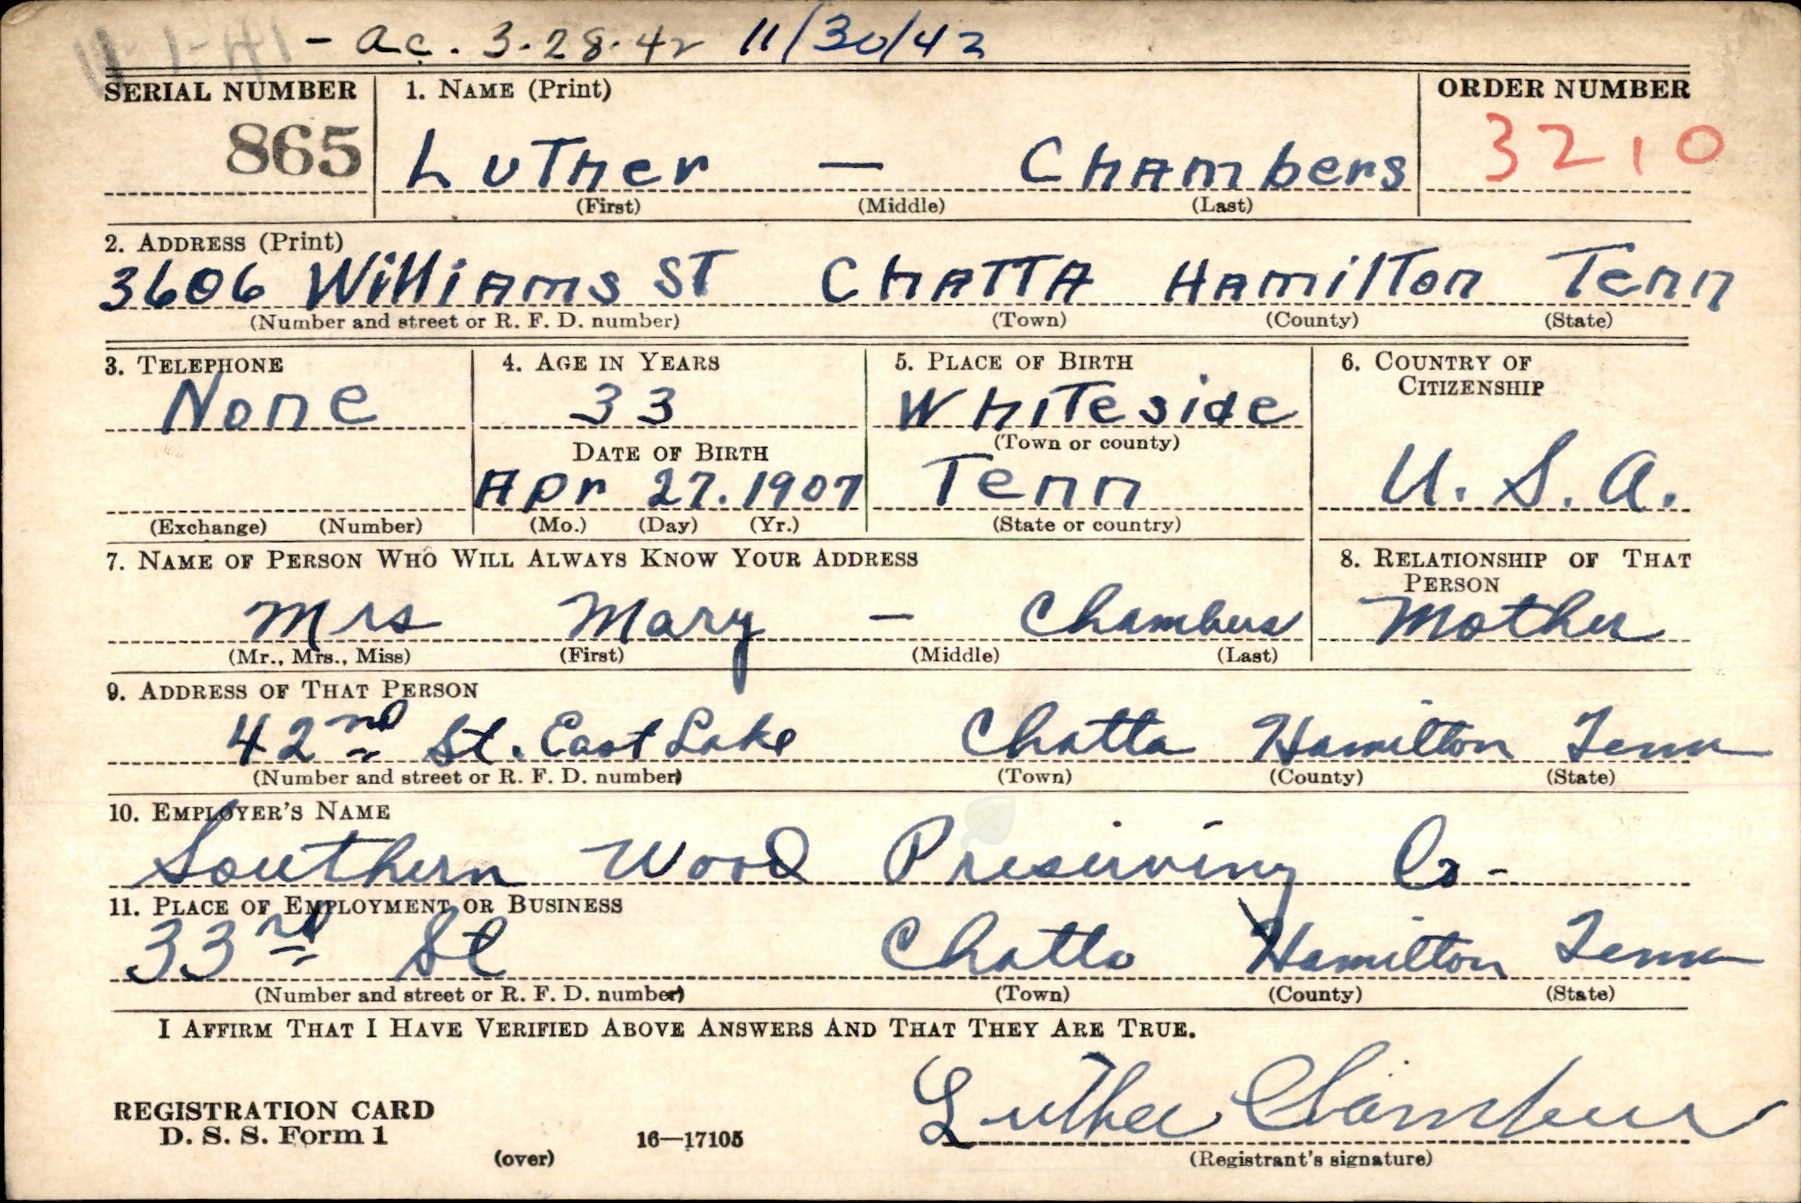 11-1-41 - ac. 3-28-42 11/30/42
SERIAL NUMBER 1. NAME (Print) ORDER NUMBER
865 Luther — Chambers 3210
(First) (Middle) (Last)
2. ADDRESS (Print)
3606 Williams ST CHATTA Hamilton Tenn
(Number and street or R. F. D. number) (Town) (County) (State)
3. TELEPHONE 4. AGE IN YEARS 5. PLACE OF BIRTH 6. COUNTRY OF CITIZENSHIP
None 33 Whiteside
DATE OF BIRTH (Town or county)
Apr 27. 1907 Tenn U. S. A.
(Exchange) (Number) (Mo.) (Day) (Yr.) (State or country)
7. NAME OF PERSON WHO WILL ALWAYS KNOW YOUR ADDRESS 8. RELATIONSHIP OF THAT PERSON
Mrs Mary — Chambers Mother
(Mr., Mrs., Miss) (First) (Middle) (Last)
9. ADDRESS OF THAT PERSON
42nd St. East Lake Chatta Hamilton Tenn
(Number and street or R. F. D. number) (Town) (County) (State)
10. EMPLOYER'S NAME
Southern Wood Preserving Co-
11. PLACE OF EMPLOYMENT OR BUSINESS
33rd St Chatta Hamilton Tenn
(Number and street or R. F. D. number) (Town) (County) (State)
I AFFIRM THAT I HAVE VERIFIED ABOVE ANSWERS AND THAT THEY ARE TRUE.
Luther Chambers
REGISTRATION CARD
D. S. S. Form 1 16—17105
(over) (Registrant's signature)